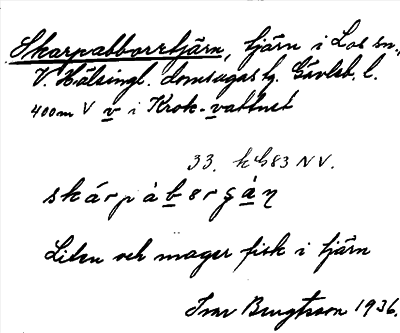 Skarpabborrtjärn, tjärn i Los sn.,
V. Hälsingl. domsagas tg. Gävleb. l.
400 m V v i Krok-vattnet
33. kb83 NV.
skárpàbǝrgàn
Liten och mager fisk i tjärn
Bengtsson 1936.